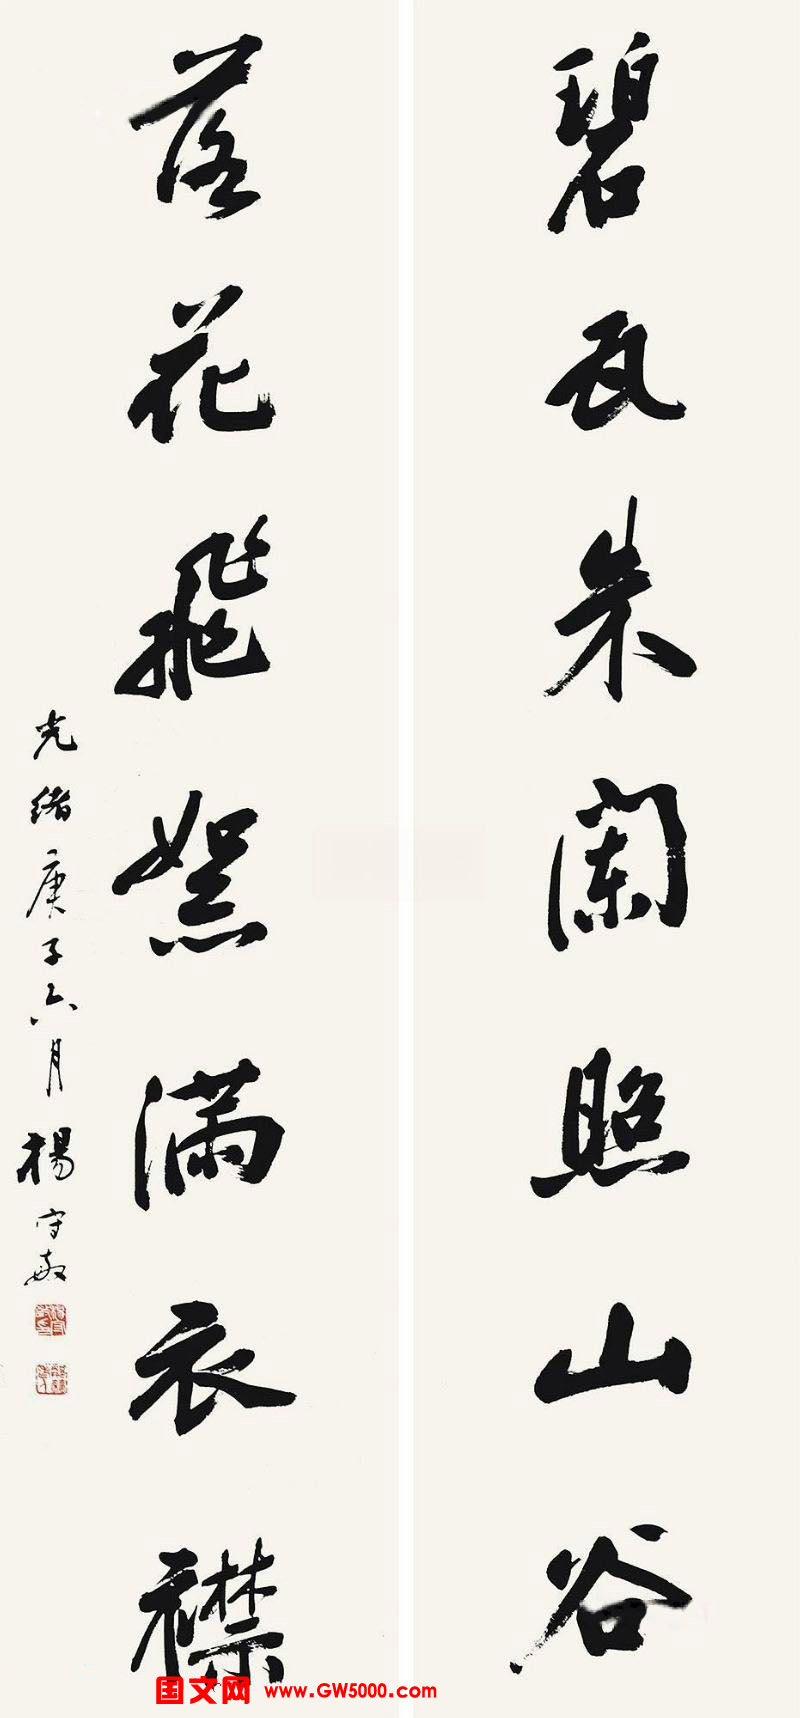 碧瓦朱闌照山谷
落花飛絮滿衣襟
光緒庚子六月楊守敬
国文网 www.GW5000.com